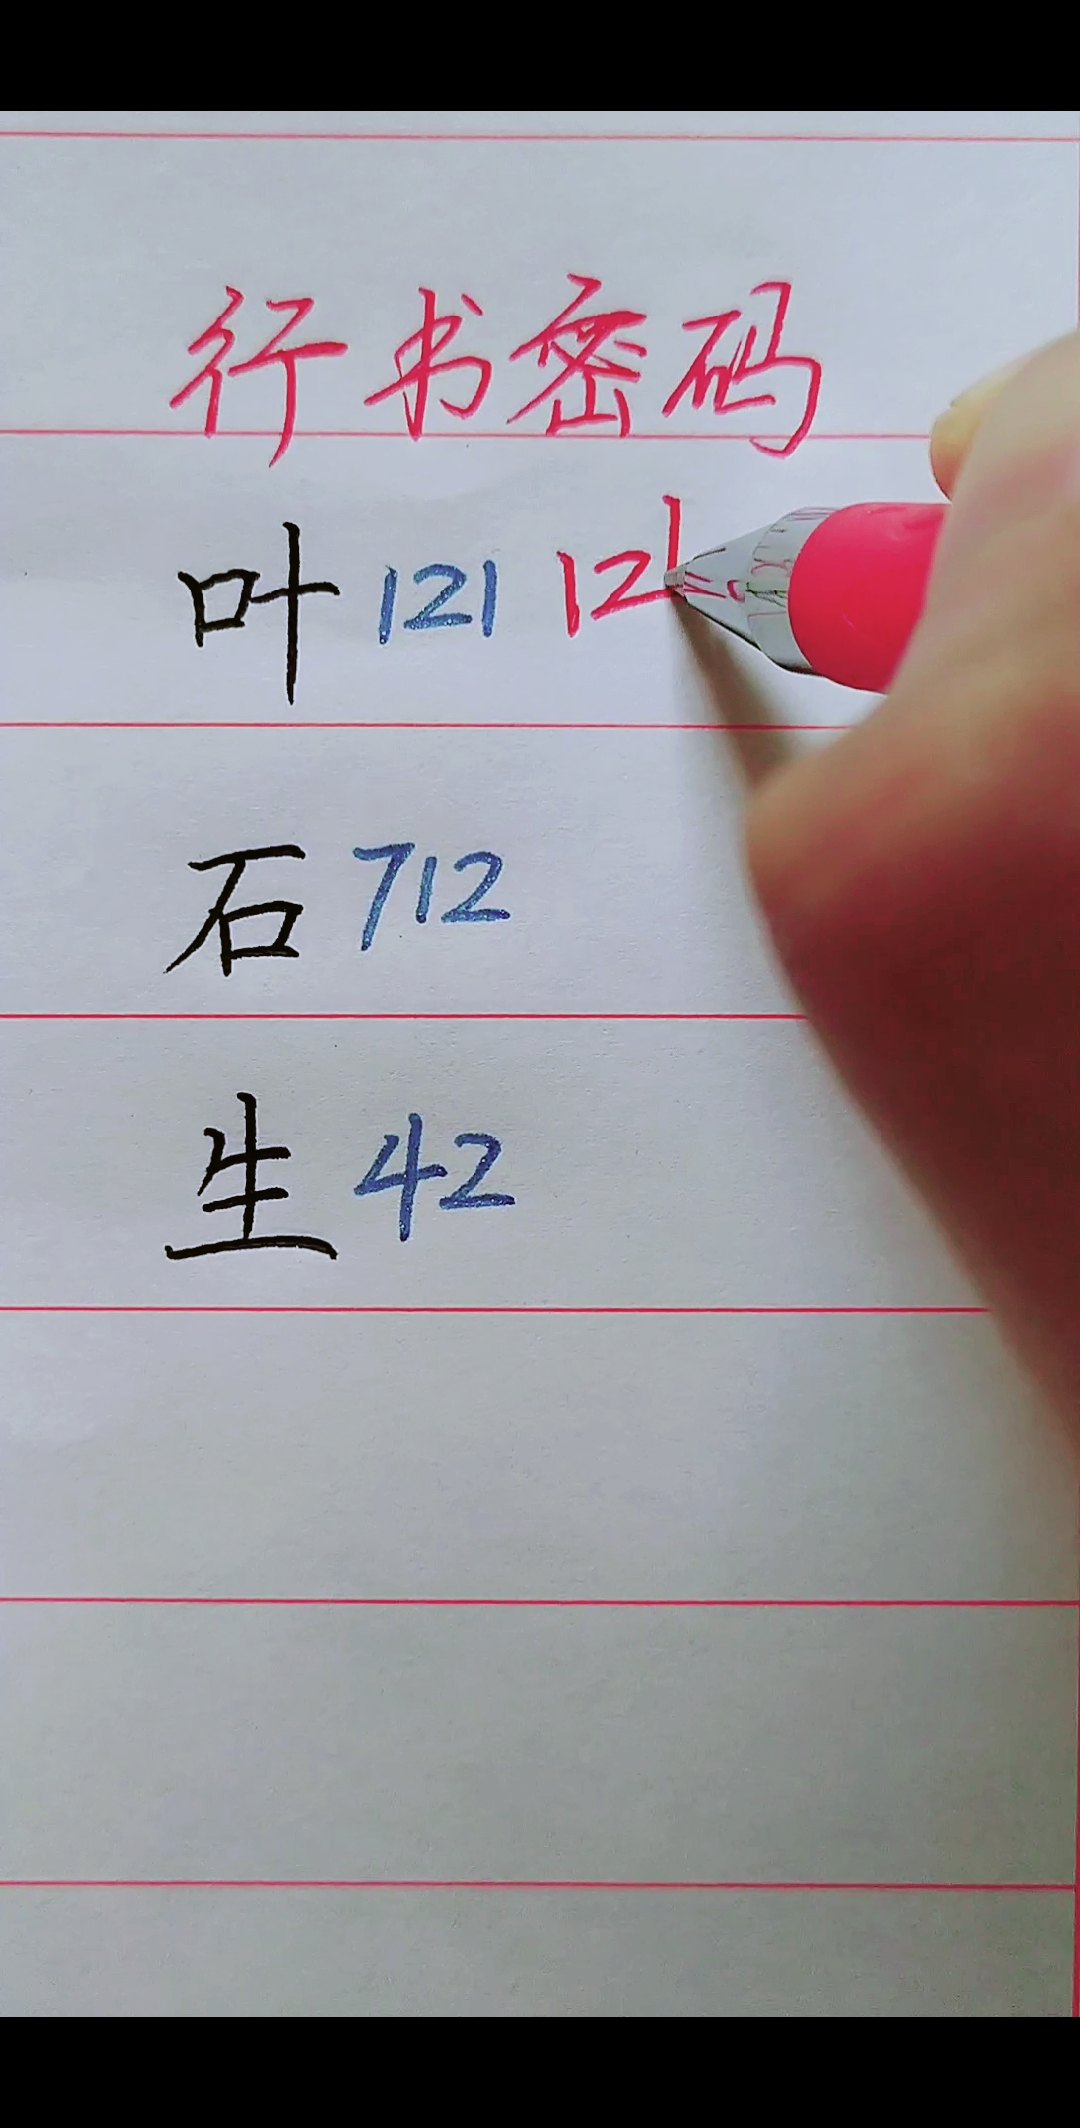 行书密码
叶 121 121
石 712
生 42